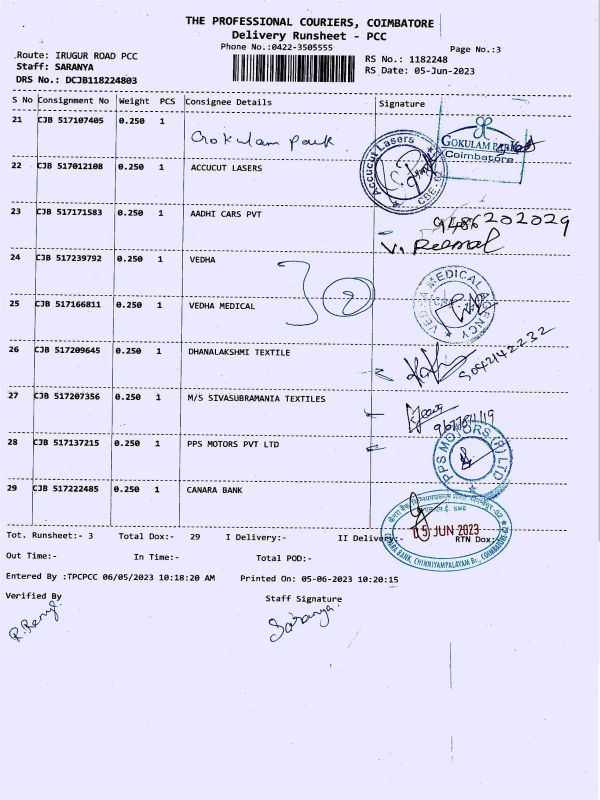 THE PROFESSIONAL COURIERS, COIMBATORE
Delivery Runsheet - PCC
Phone No.:0422-3505555
Page No.:3
Route: IRUGUR ROAD PCC
RS No.: 1182248
Staff: SARANYA
RS Date: 05-Jun-2023
DRS No.: DCJB118224803
S No Consignment No Weight PCS Consignee Details Signature
21 CJB 517107405 0.250 1 Gokulam park
GOKULAM PARK
Coimbatore
22 CJB 517012108 0.250 1 ACCUCUT LASERS
Accucut Lasers
CBE-62
23 CJB 517171583 0.250 1 AADHI CARS PVT
9486202029
24 CJB 517239792 0.250 1 VEDHA
25 CJB 517166811 0.250 1 VEDHA MEDICAL
VEDHA MEDICAL AGENCY
26 CJB 517209645 0.250 1 DHANALAKSHMI TEXTILE
27 CJB 517207356 0.250 1 M/S SIVASUBRAMANIA TEXTILES
28 CJB 517137215 0.250 1 PPS MOTORS PVT LTD
PPS MOTORS (P) LTD
29 CJB 517222485 0.250 1 CANARA BANK
05 JUN 2023
CANARA BANK, CHINNIYAMPALAYAM Br., COIMBATORE-62
Tot. Runsheet:- 3 Total Dox:- 29 I Delivery:- II Delivery:- RTN Dox:-
Out Time:- In Time:- Total POD:-
Entered By :TPCPCC 06/05/2023 10:18:20 AM Printed On: 05-06-2023 10:20:15
Verified By Staff Signature
Saranya